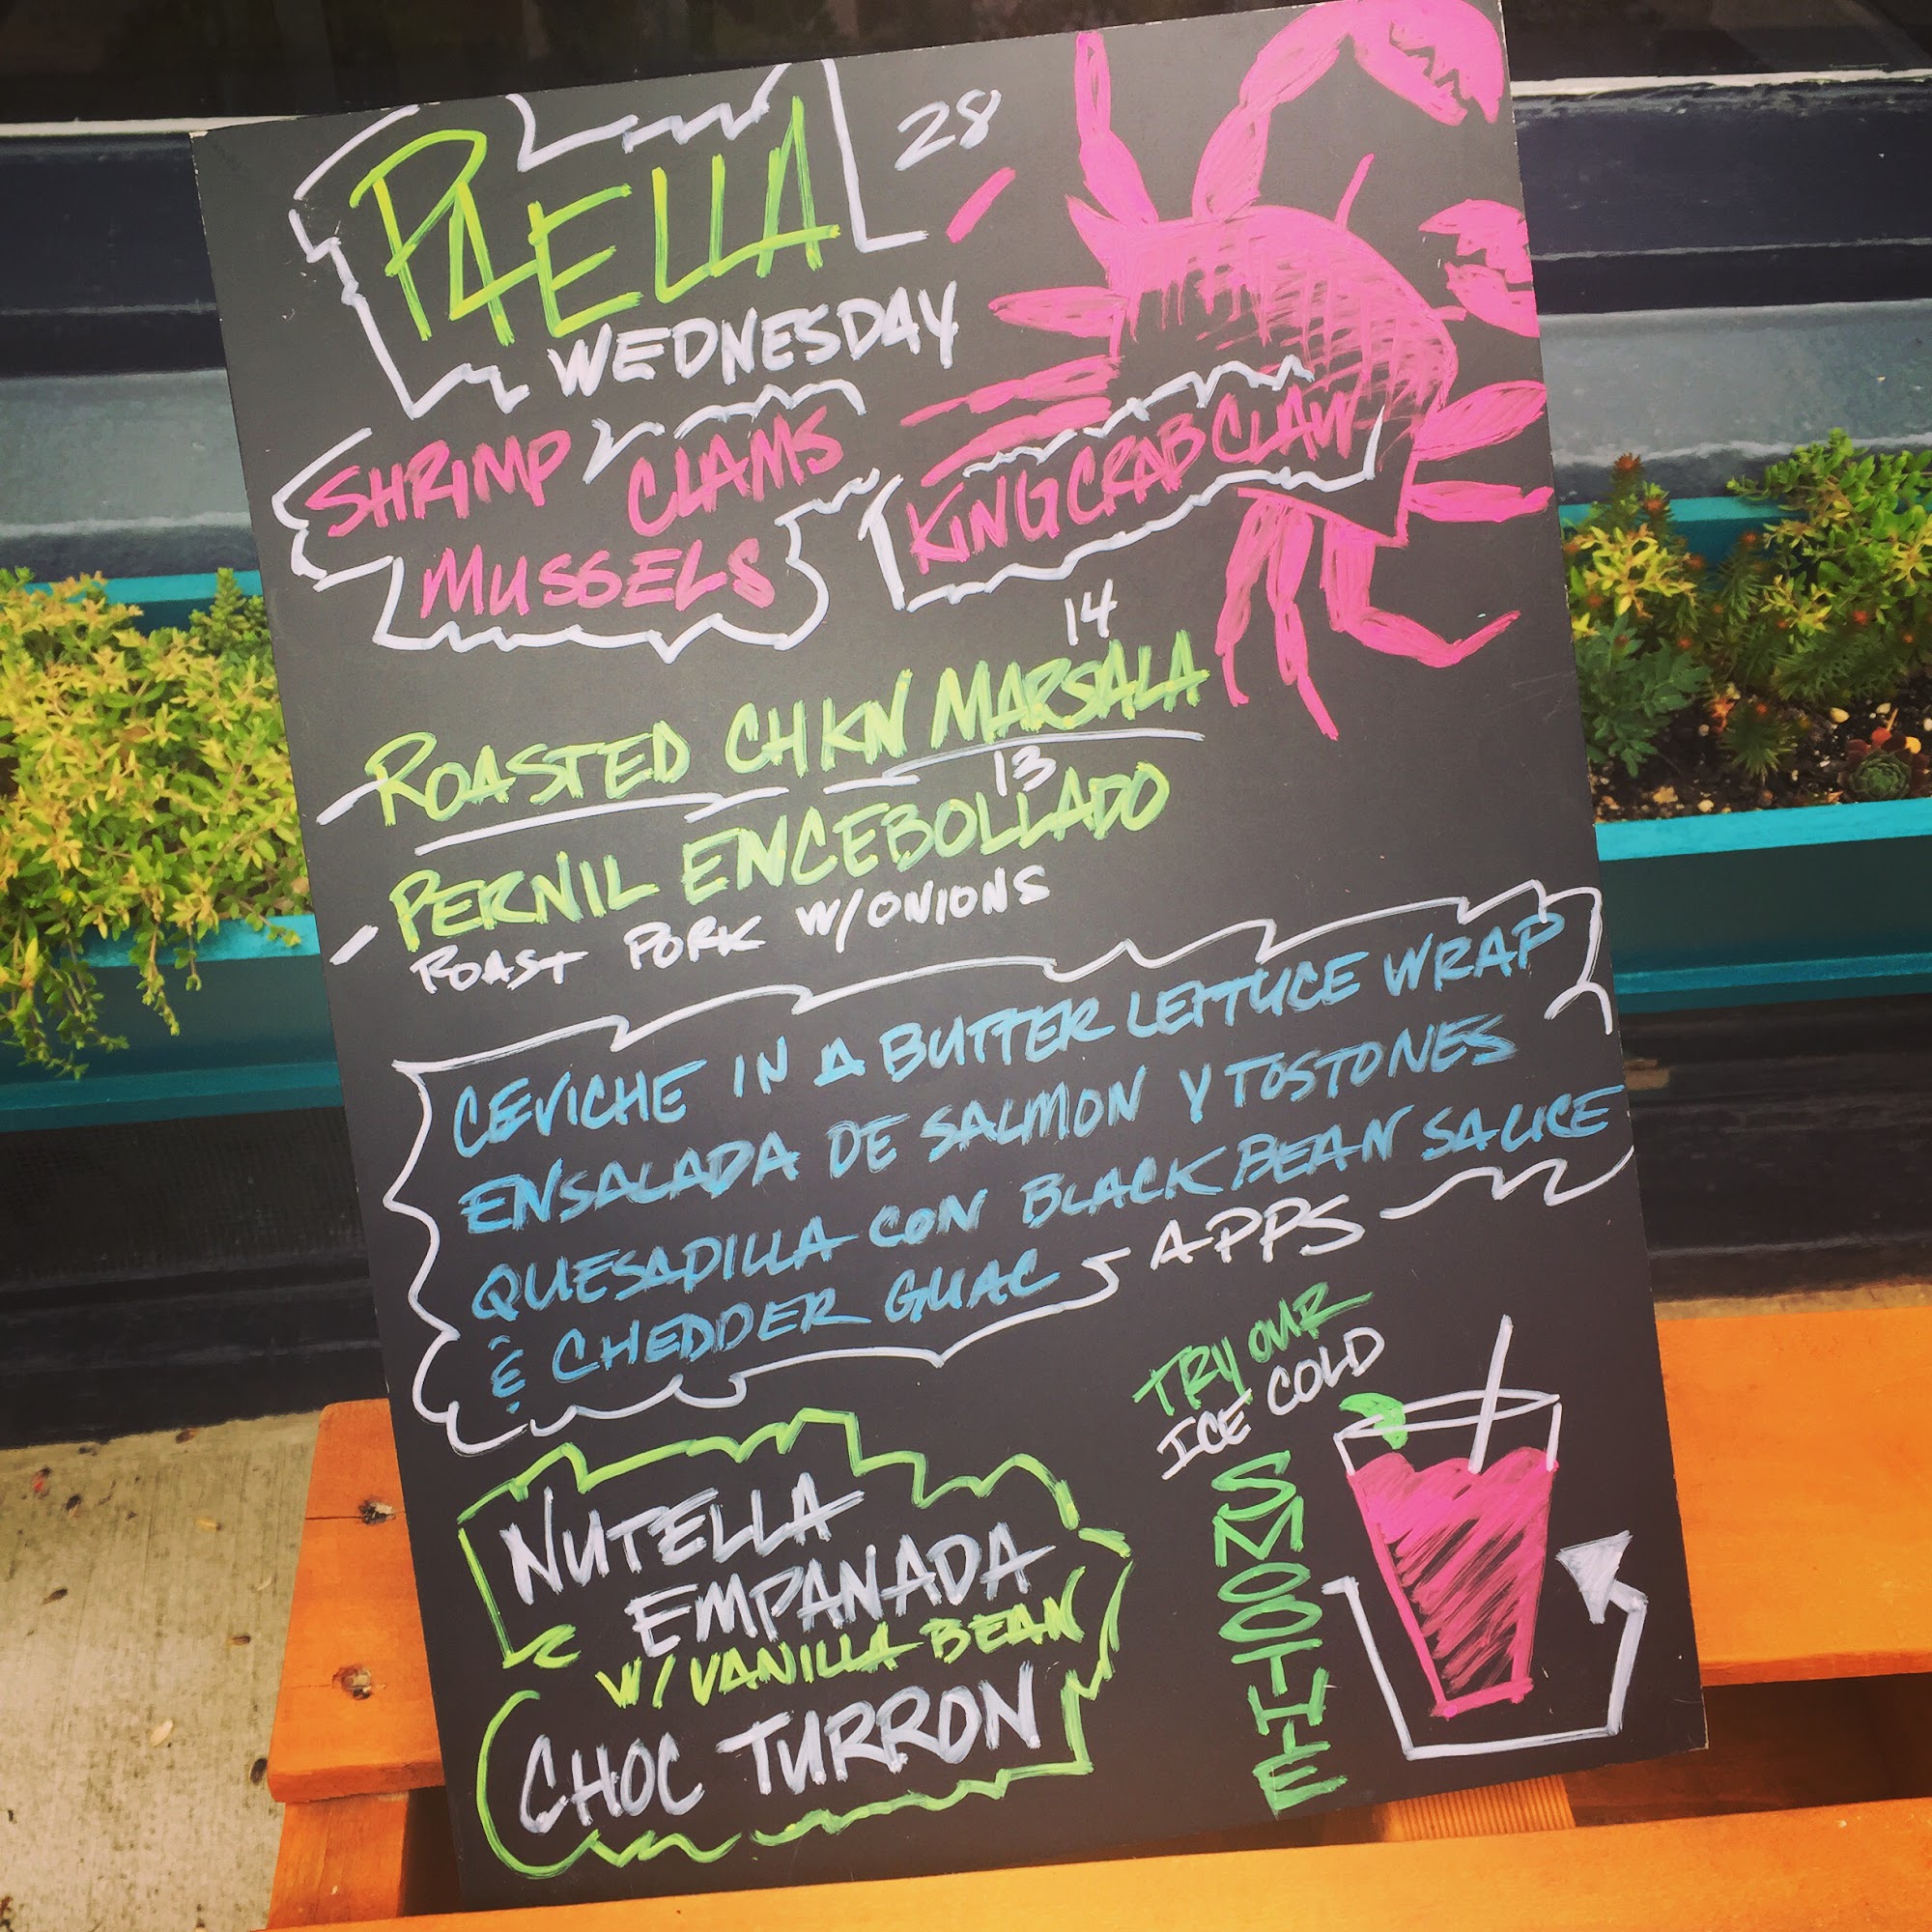 PAELLA 28
WEDNESDAY
SHRIMP CLAMS
MUSSELS
KING CRAB CLAW
14
ROASTED CHKN MARSALA
13
PERNIL ENCEBOLLADO
ROAST PORK W/ONIONS
CEVICHE IN A BUTTER LETTUCE WRAP
ENSALADA DE SALMON Y TOSTONES
QUESADILLA CON BLACK BEAN SAUCE
& CHEDDER GUAC APPS
NUTELLA
EMPANADA
W/VANILLA BEAN
CHOC TURRON
TRY OUR
ICE COLD
SMOOTHIE